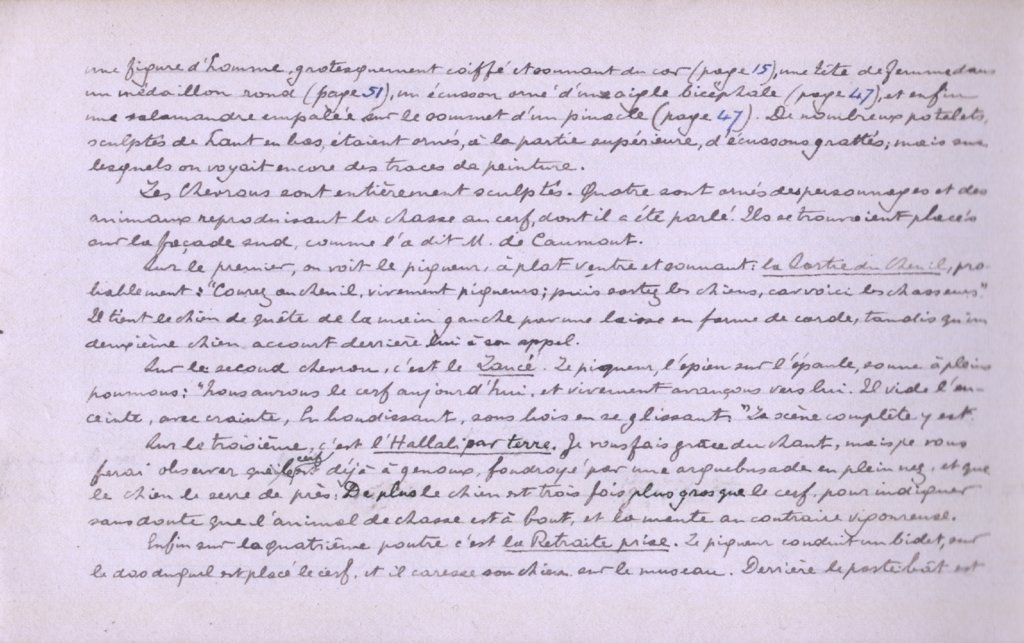 une figure d'homme, grotesquement coiffé et sonnant du cor (page 15), une tête de femme dans
un médaillon rond (page 51), un écusson orné d'un aigle bicéphale (page 47), et enfin
une salamandre empalée sur le sommet d'un pinacle (page 47). De nombreux potelets,
sculptés de haut en bas, étaient ornés, à la partie supérieure, d'écussons grattés; mais sur
lesquels on voyait encore des traces de peinture.
Les Chevrons sont entièrement sculptés. Quatre sont ornés des personnages et des
animaux reproduisant la chasse au cerf, dont il a été parlé. Ils se trouvaient placés
sur la façade sud, comme l'a dit M. de Caumont.
Sur le premier, on voit le piqueur, à plat ventre et sonnant: la Sortie du Chenil, pro-
bablement: "Courez au chenil, vivement piqueurs; puis sortez les chiens, car voici les chasseurs"
Il tient le chien de quête de la main gauche par une laisse en forme de corde, tandis qu'un
deuxième chien accourt derrière lui à son appel.
Sur le second chevron, c'est le Lancé. Le piqueur, l'épieu sur l'épaule, sonne à pleins
poumons: "Nous aurons le cerf aujourd'hui, et vivement avançons vers lui. Il vide l'en-
ceinte, avec crainte, En bondissant, sous bois en se glissant." La scène complète y est.
Sur le troisième, c'est l'Hallali par terre. Je vous fais grâce du chant, mais je vous
ferai observer que le cerf déjà à genoux, foudroyé par une arquebusade en plein nez, et que
le chien le serre de près. De plus le chien est trois fois plus gros que le cerf, pour indiquer
sans doute que l'animal de chasse est à bout, et la meute au contraire vigoureuse.
Enfin sur la quatrième poutre c'est la Retraite prise. Le piqueur conduit un bidet, sur
le dos duquel est placé le cerf, et il caresse son chien sur le museau. Derrière le porte bât est